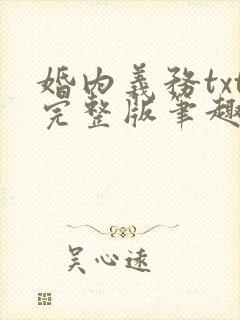 婚内義務txt
完整版筆趣
吴心远